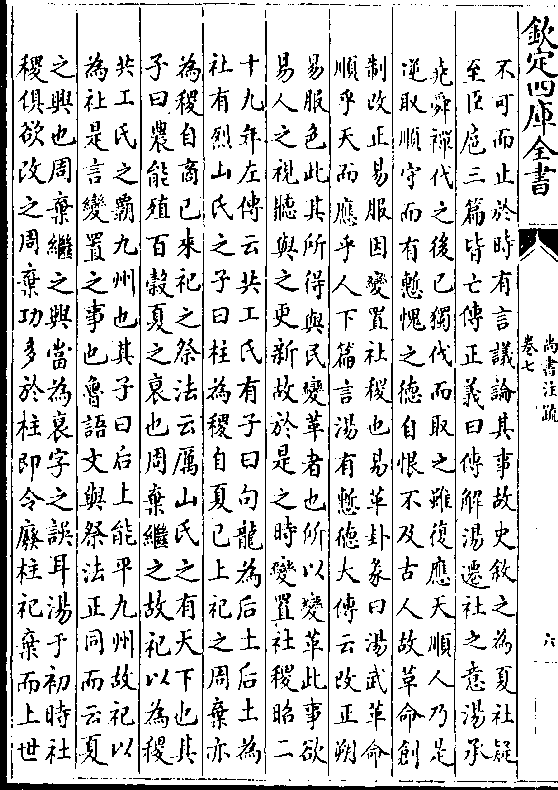 欽定四庫全書
尚書注疏
卷七
六
不可而止於時有言議論其事故史敘之為夏社疑
至臣扈三篇皆亡傳正義曰傳解湯遷社之意湯承
堯舜禪代之後已獨伐而取之雖復應天順人乃是
逆取順守而有慙愧之德自恨不及古人故革命創
制改正易服因變置社稷也易革卦彖曰湯武革命
順乎天而應乎人下篇言湯有慙德大傳云改正朔
易服色此其所得與民變革者也所以變革此事欲
易人之視聽與之更新故於是之時變置社稷昭二
十九年左傳云共工氏有子曰句龍為后土后土為
社有烈山氏之子曰柱為稷自夏已上祀之周棄亦
為稷自商已來祀之祭法云厲山氏之有天下也其
子曰農能殖百穀夏之衰也周棄繼之故祀以為稷
共工氏之霸九州也其子曰后土能平九州故祀以
為社是言變置之事也魯語文與祭法正同而云夏
之興也周棄繼之興當為衰字之誤耳湯于初時社
稷俱欲改之周棄功多於柱即令廢柱祀棄而上世